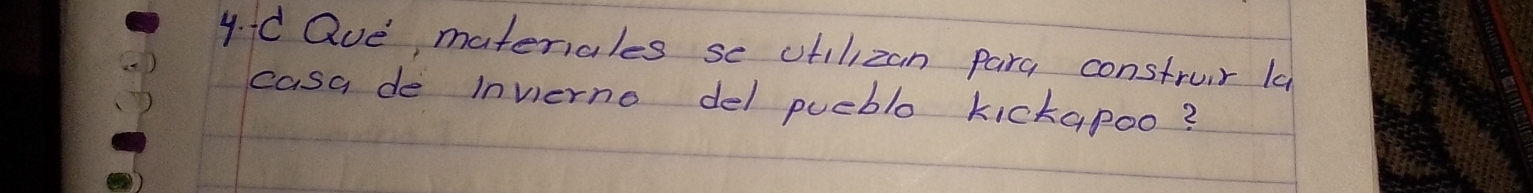 4.-¿ Qué, materiales se utilizan para construir la
casa de invierno del pueblo kickapoo?